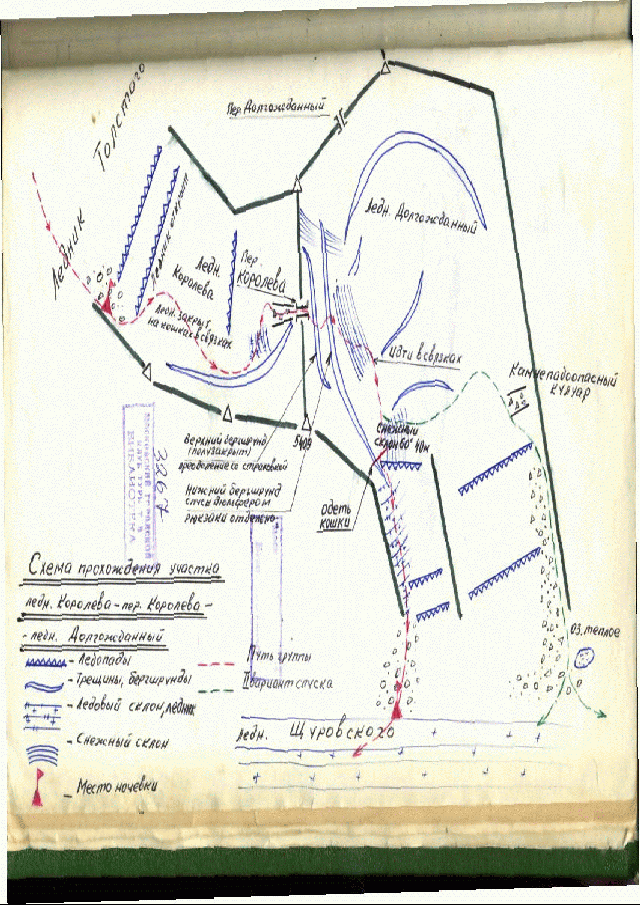 Толстого
Ледник
пер. Долгожданный
ледн. Долгожданный
ледник открыт
Ледн.
Королева
Пер.
Королева
ледн. закрыт
на кошках в связках
Идти в связках
Камнепадоопасный
кулуар
Снежный
склон 60° 40м
Верхний бергшрунд
(полузакрыт)
преодоление со страховкой
Нижний бергшрунд
спуск дюльфером
рюкзаки отдельно
Одеть
кошки
БИБЛИОТЕКА
3267
Схема прохождения участка
ледн. Королева - пер. Королева -
- ледн. Долгожданный
- Ледопады
- Трещины, бергшрунды
- Ледовый склон, ледник
- Снежный склон
- Место ночевки
Путь группы
II вариант спуска
оз. теплое
ледн. Щуровского